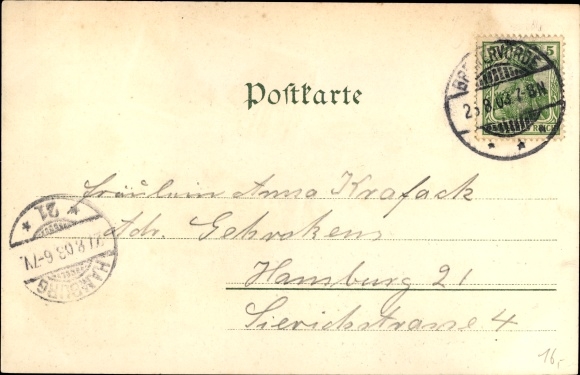 5
BREMERVÖRDE
8.03 7-8N
Postkarte
Fräulein Anna Krafack
Adr. Gehrckens
Hamburg 21
Sierichstrasse 4
* 21 *
8.03 6-7V.
HAMBURG
16,-